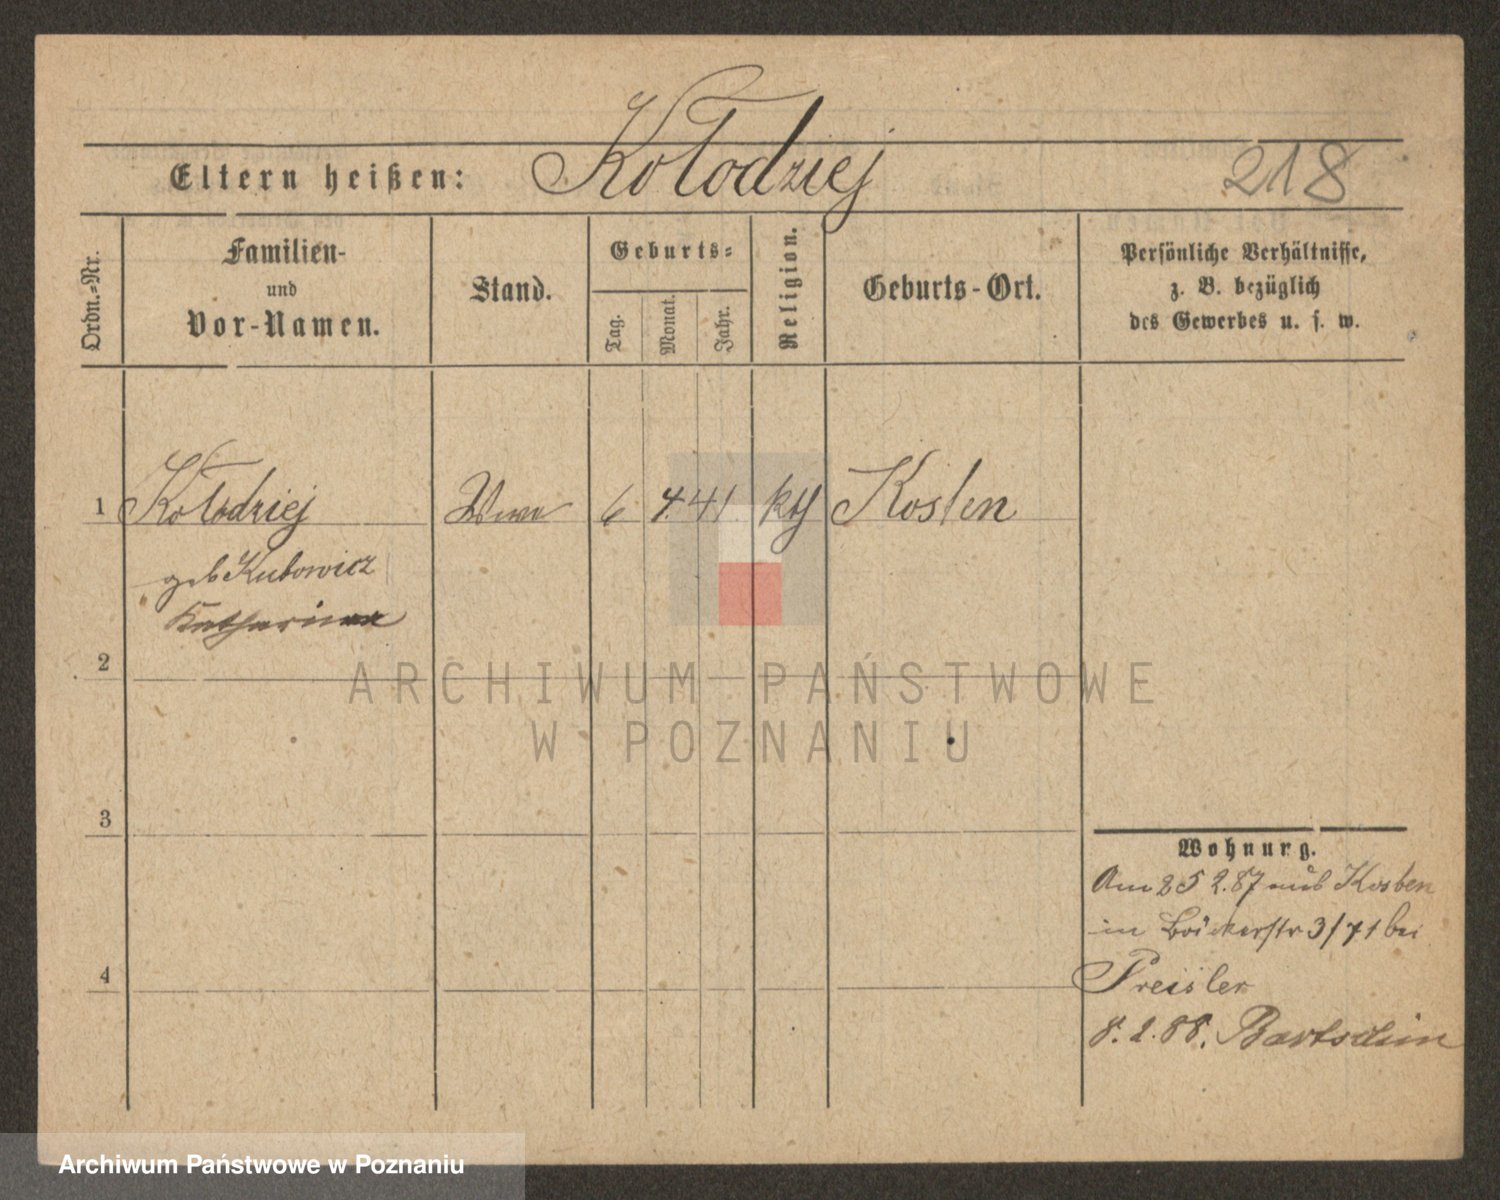 Eltern heißen: Kołodziej 218
Ordn.=Nr.
Familien-
und
Vor-Namen.
Stand.
Geburts=
Tag.
Monat.
Jahr.
Religion.
Geburts-Ort.
Persönliche Verhältnisse,
z. B. bezüglich
des Gewerbes u. s. w.
1 Kołodziej Wwe 6 4. 41. kth Kosten
geb Kubowicz
Katharina
2
3
4
Wohnung.
Am 25 2.87 aus Kosten
in Bäckerstr 3/71 bei
Preisler
8. 2. 88.
ARCHIWUM PAŃSTWOWE
W POZNANIU
Archiwum Państwowe w Poznaniu